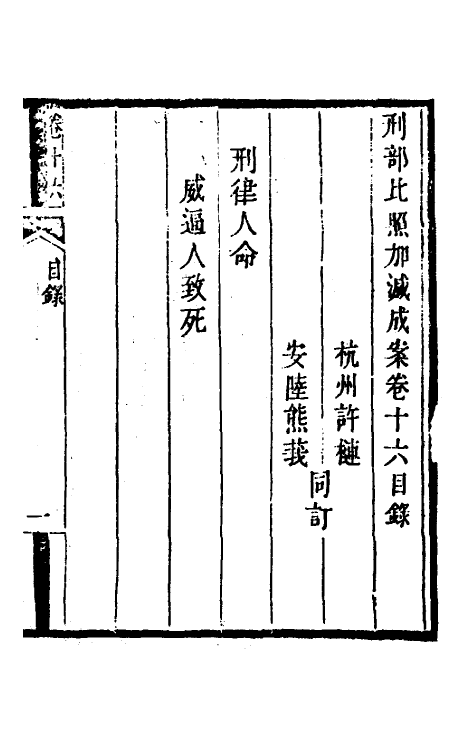 刑部比照加減成案卷十六目錄
杭州許槤
安陸熊莪
同訂
刑律人命
威逼人致死
卷十六
目錄
一